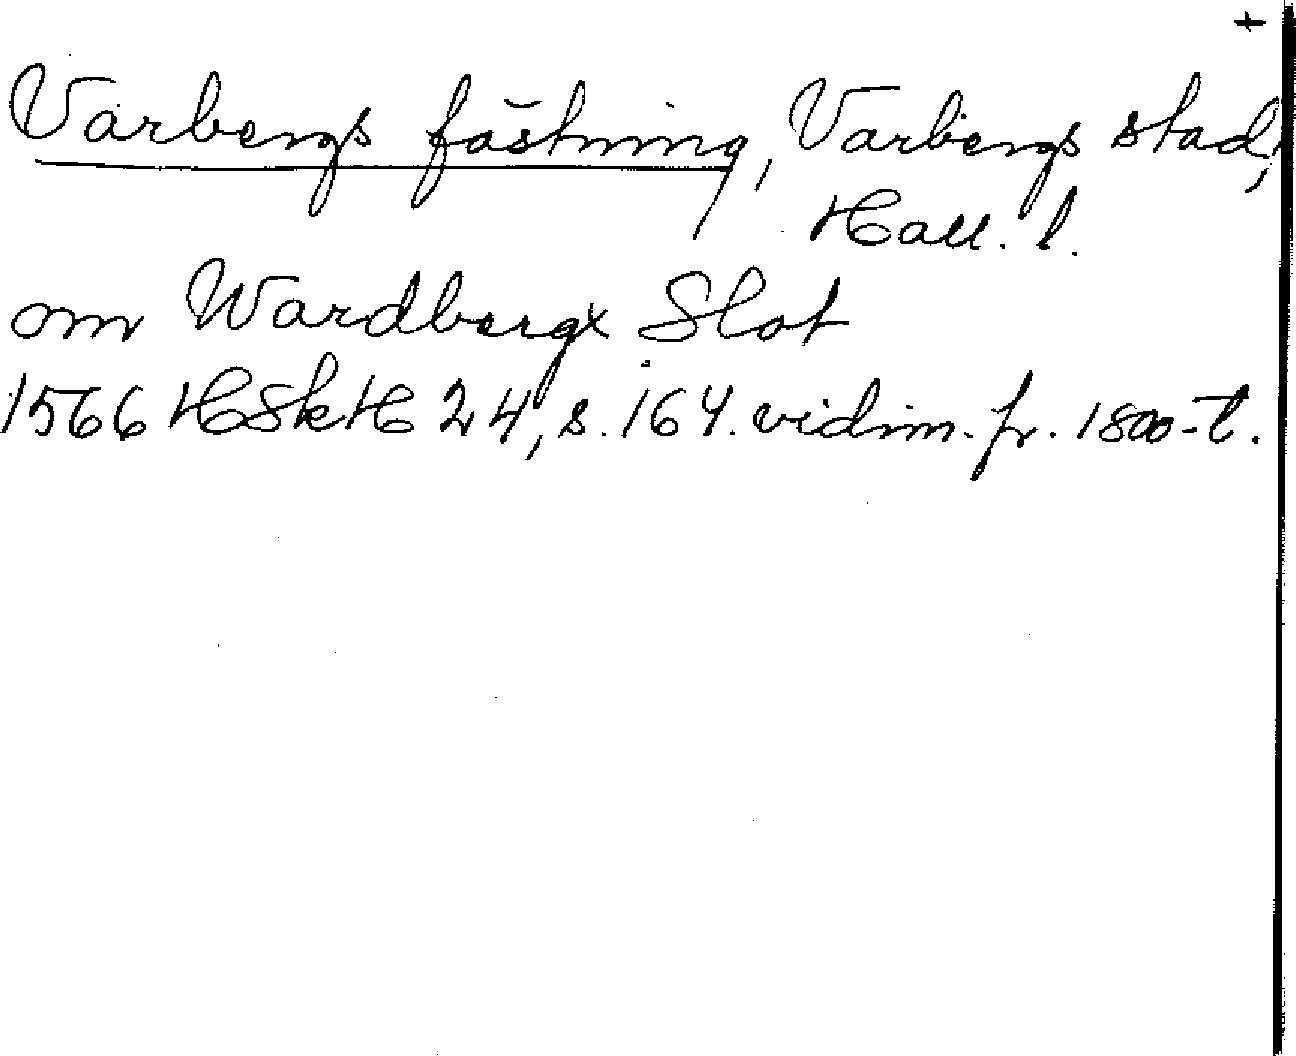 +
Varbergs fästning, Varbergs stad,
Hall. l.
om Wardbergx Slot
1566 HSkH 24, s. 164. vidim. fr. 1800-t.